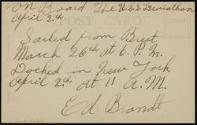 On Board The U.S.S Leviathan
April 2nd.
POST CARD
Sailed from Brest
March 26th at 6 P.M.
Docked in New York
April 2nd at 11 A.M.
Ed Brandt